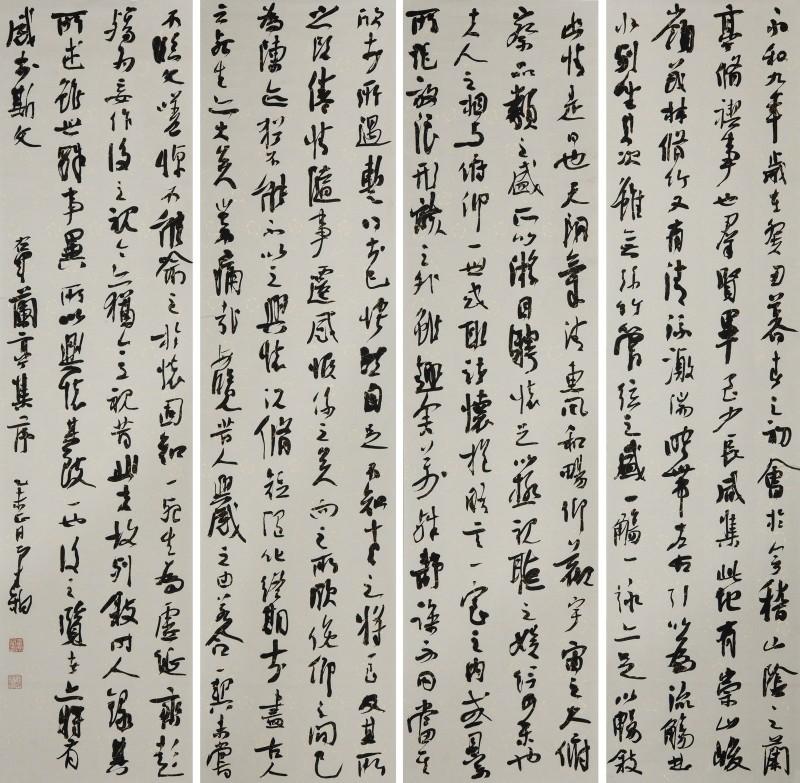 永和九年歲在癸丑暮春之初會於會稽山陰之蘭
亭脩禊事也群賢畢至少長咸集此地有崇山峻
嶺茂林脩竹又有清流激湍映帶左右引以為流觴曲
水列坐其次雖無絲竹管弦之盛一觴一詠亦足以暢敘
幽情是日也天朗氣清惠風和暢仰觀宇宙之大俯
察品類之盛所以遊目騁懷足以極視聽之娛信可樂也
夫人之相與俯仰一世或取諸懷抱晤言一室之內或因寄
所託放浪形骸之外雖趣舍萬殊靜躁不同當其
欣於所遇暫得於己快然自足不知老之將至及其所
之既倦情隨事遷感慨係之矣向之所欣俛仰之間已
為陳迹猶不能不以之興懷況脩短隨化終期於盡古人
云死生亦大矣豈不痛哉每覽昔人興感之由若合一契未嘗
不臨文嗟悼不能喻之於懷固知一死生為虛誕齊彭
殤為妄作後之視今亦猶今之視昔悲夫故列敘時人錄其
所述雖世殊事異所以興懷其致一也後之覽者亦將有
感於斯文
蘭亭集序 乙未